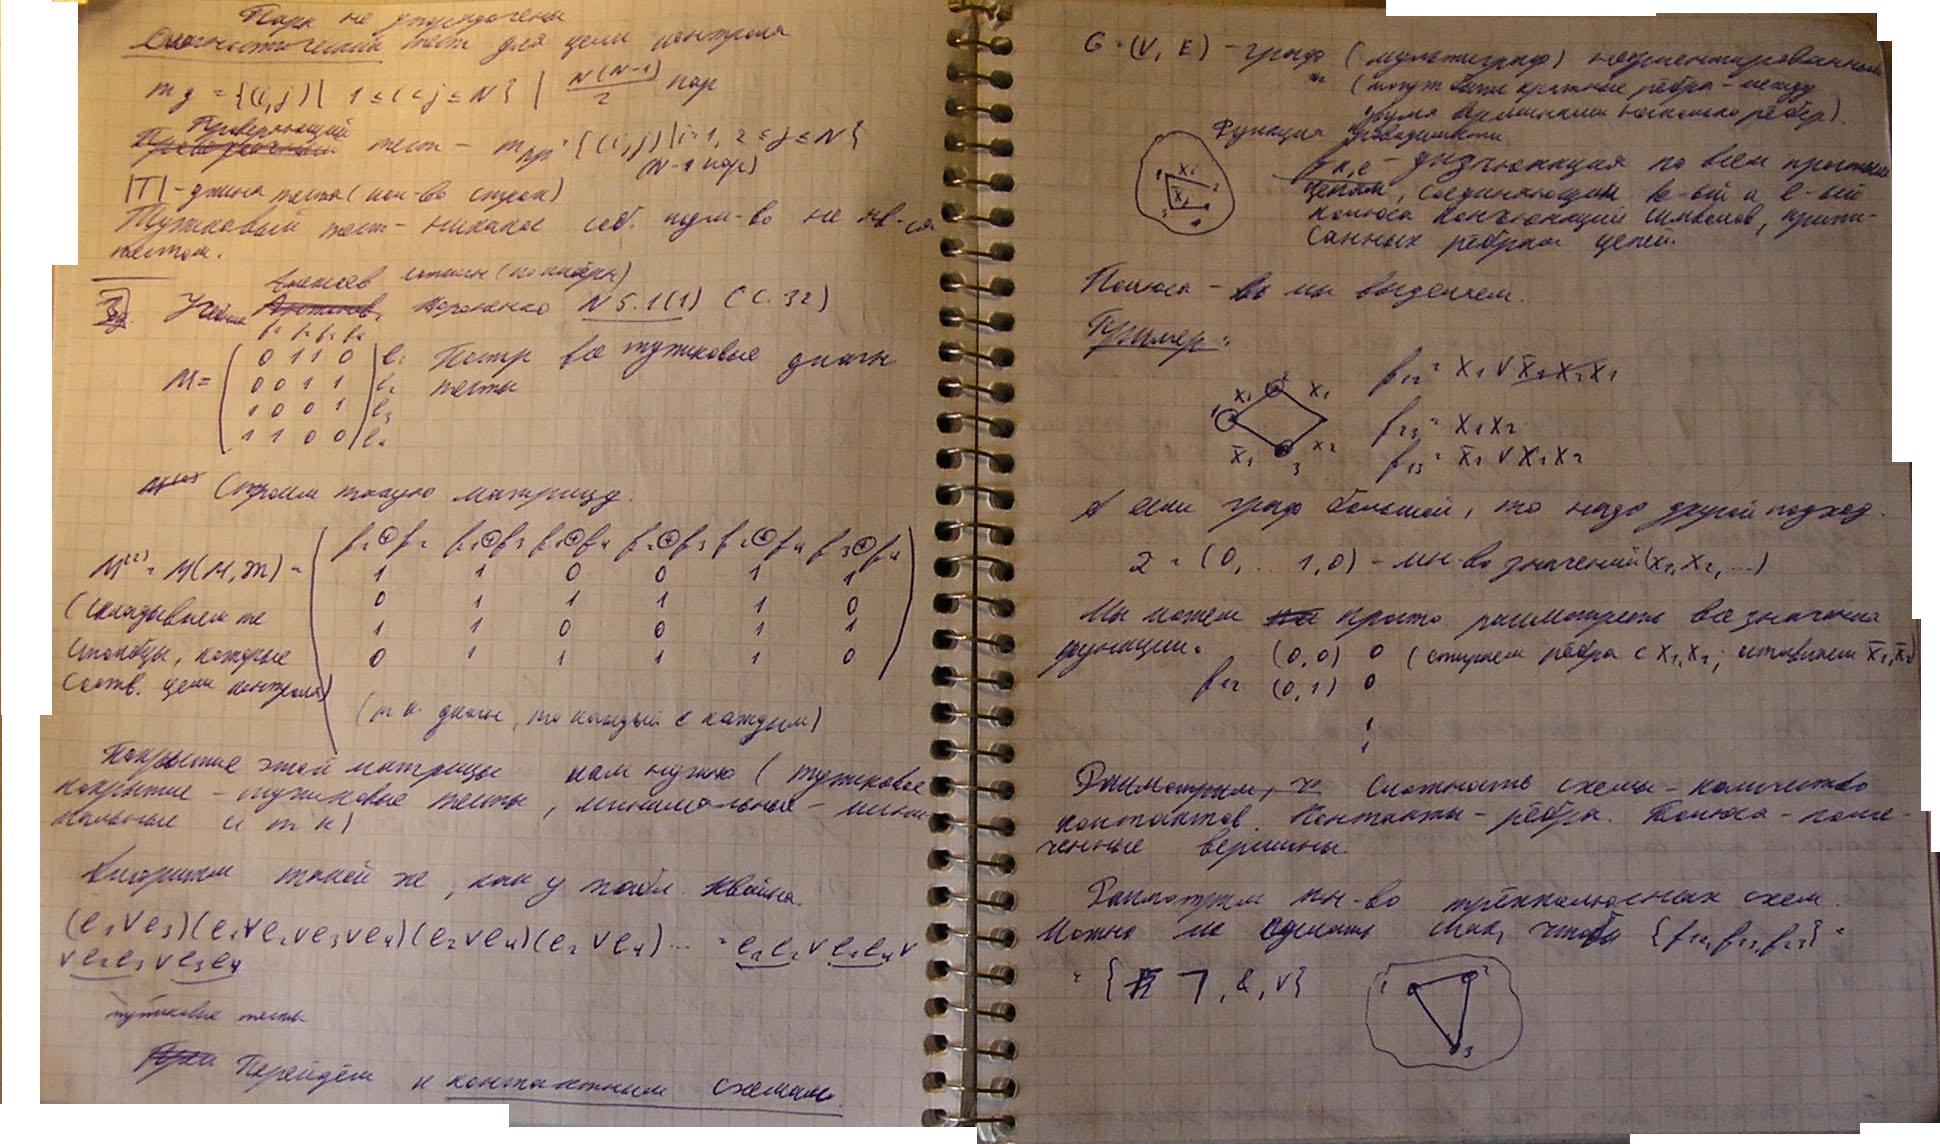 Пары не упорядочены
Диагностический тест для цели контроля
m д = {(i,j) | 1 ≤ i < j ≤ N} | N(N-1)/2 пар
Проверяющий
тест - m пр = {(i,j) | i=1, 2 ≤ j ≤ N}
(N-1 пар)
|T| - длина теста (кол-во строк)
Тупиковый тест - никакое соб. подм-во не яв-ся
тестом.
Алексеев Ложкин (по киберн)
Учебник , N 5.1(1) (С. 32)
f₁ f₂ f₃ f₄
M = ( 0 1 1 0 ) e₁ Постр все тупиковые диагн
0 0 1 1 e₂ тесты
1 0 0 1 e₃
1 1 0 0 e₄
Строим такую матрицу.
f₁⊕f₂ f₁⊕f₃ f₁⊕f₄ f₂⊕f₃ f₂⊕f₄ f₃⊕f₄
M⁽²⁾ = M(M, m) = 1 1 0 0 1 1
(складываем те 0 1 1 1 1 0
столбцы, которые 1 1 0 0 1 1
соотв. цели контроля) 0 1 1 1 1 0
(т.к. диагн, то каждый с каждым)
Покрытие этой матрицы нам нужно (тупиковое
покрытие - тупиковые тесты, минимальное - мини-
мальные и т п)
Алгоритм такой же, как у табл. Квайна.
(e₁ ∨ e₃)(e₁ ∨ e₂ ∨ e₃ ∨ e₄)(e₂ ∨ e₄)(e₂ ∨ e₄) ... = e₁e₂ ∨ e₁e₄ ∨
∨ e₂e₃ ∨ e₃e₄
тупиковые тесты
Перейдём к контактным схемам.
G = (V, E) - граф (мультиграф) неориентированный
(могут быть кратные рёбра - между
двумя вершинами несколько рёбер).
Функция проводимости
f k,l - дизъюнкция по всем простым
цепям, соединяющим k-ый и l-ый
полюса конъюнкций символов, припи-
санных рёбрам цепей.
1 x₂ 2
x̄₁
3
Полюса - мы выделяем.
Пример:
f₁₂ = x₁ ∨ x̄₁x₂x₁
2
x₁ x₁
1
f₂₃ = x₁x₂
x̄₁ 3 x₂
f₁₃ = x̄₁ ∨ x₁x₂
А если граф большой, то надо другой подход.
2 = (0, .. 1, 0) - мн-во значений (x₁, x₂, ...)
Мы можем просто рассмотреть все значения
функции. (0,0) 0 (стираем рёбра с x₁, x₂; оставляем x̄₁, x̄₂)
f₁₂ (0,1) 0
1
1
Рассмотрим, Сложность схемы - количество
контактов. Контакты - рёбра. Полюса - поме-
ченные вершины.
Рассмотрим мн-во трёхполюсных схем.
Можно ли сделать так, чтобы {f₁₂, f₁₃, f₂₃} =
= { ¬, &, ∨}
1 2
3